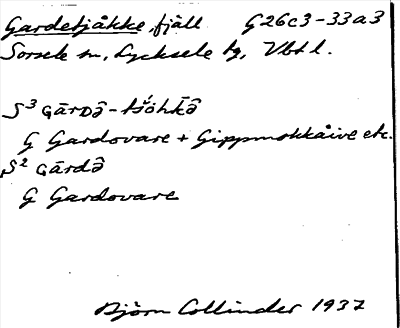 Gardetjåkke, fjäll G26c3-33a3
Sorsele sn, Lycksele tg, Vbtl.
S³ GāRDə̑-tšŏ́hkə̑
G Gardovare + Gippmokkåive etc.
S² Gārdə̑
G Gardovare
Björn Collinder 1937